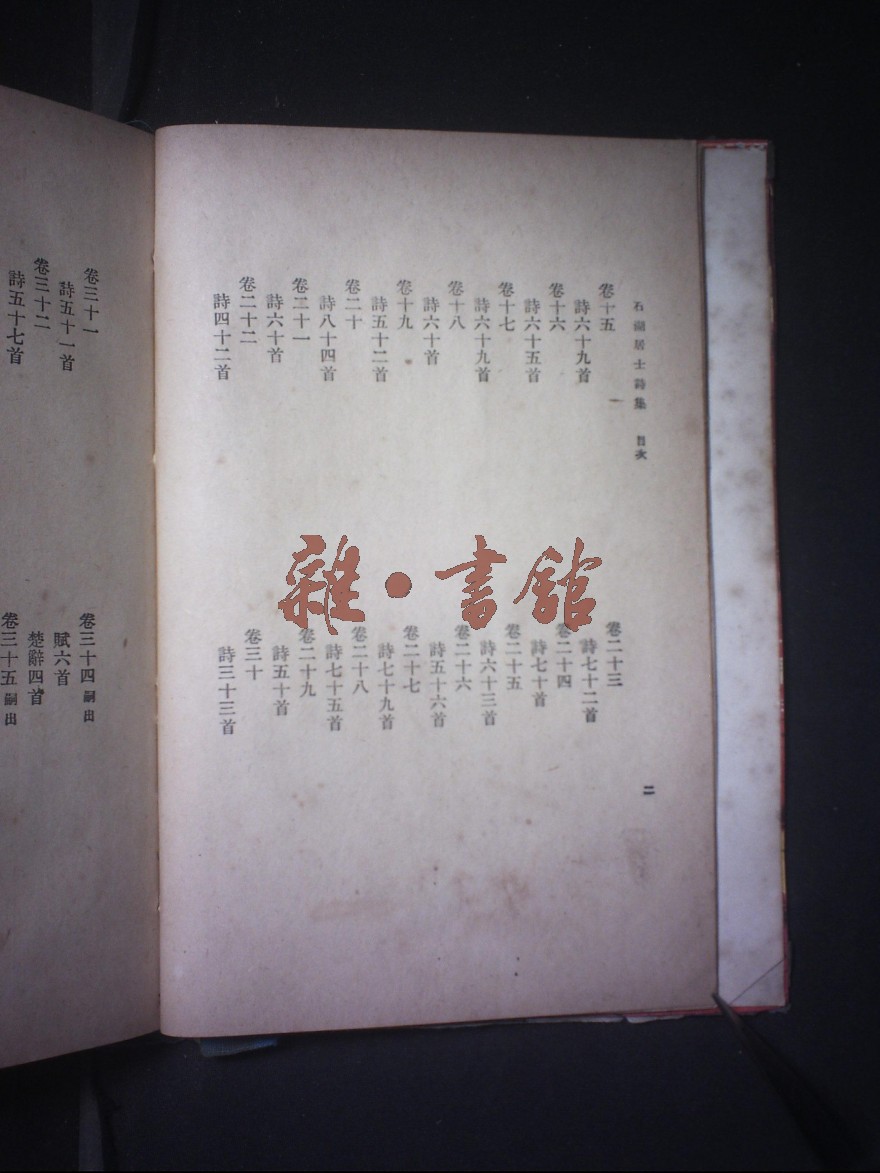 石湖居士詩集 目次
卷十五
詩六十九首
卷十六
詩六十五首
卷十七
詩六十九首
卷十八
詩六十首
卷十九
詩五十二首
卷二十
詩八十四首
卷二十一
詩六十首
卷二十二
詩四十二首
卷二十三
詩七十二首
卷二十四
詩七十首
卷二十五
詩六十三首
卷二十六
詩五十六首
卷二十七
詩七十九首
卷二十八
詩七十五首
卷二十九
詩五十首
卷三十
詩三十三首
二
卷三十一
詩五十一首
卷三十二
詩五十七首
卷三十四 嗣出
賦六首
楚辭四首
卷三十五 嗣出
雜·書館